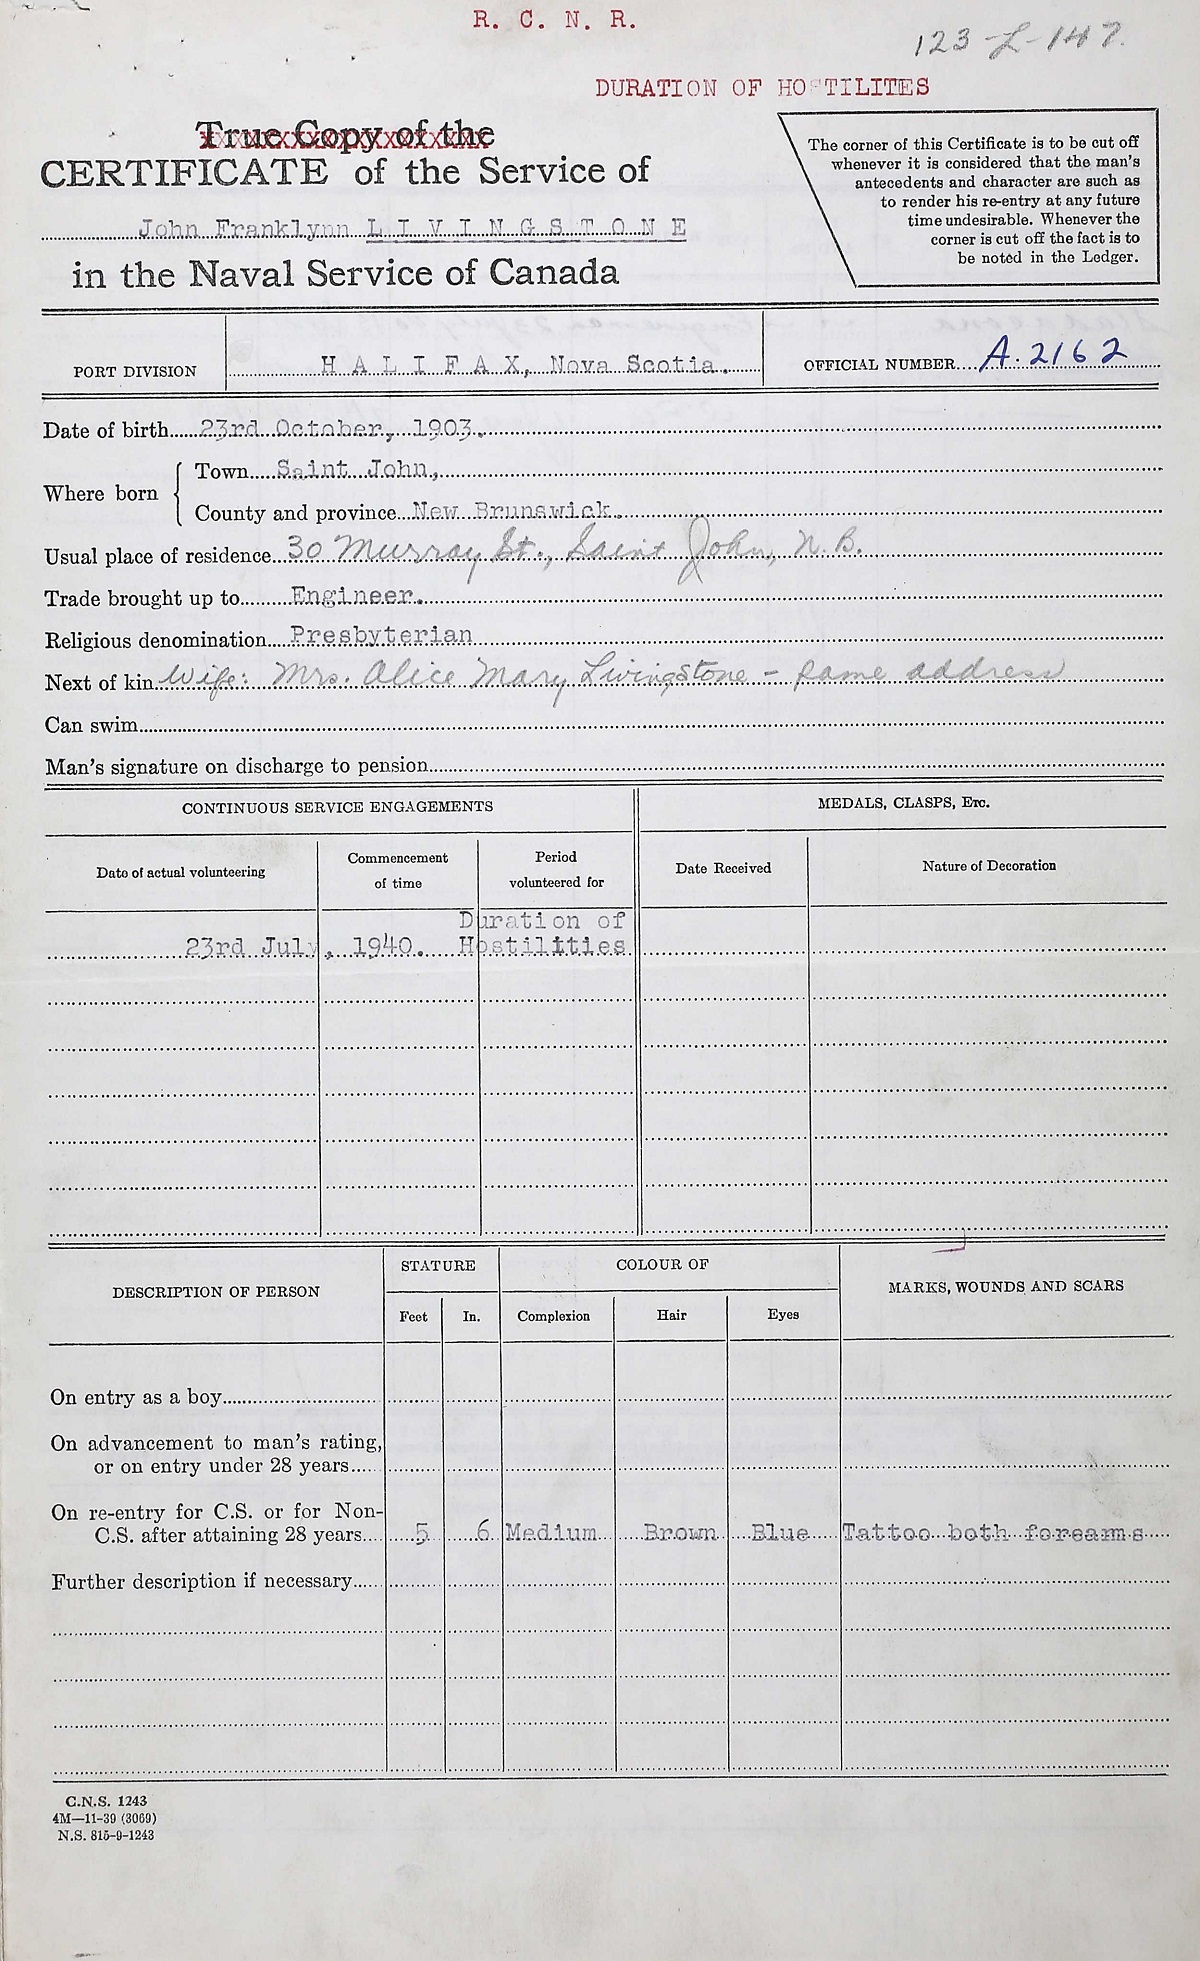 R. C. N. R.
123-L-147.
DURATION OF HOSTILITES
True Copy of the
CERTIFICATE of the Service of
John Franklynn L I V I N G S T O N E
in the Naval Service of Canada
The corner of this Certificate is to be cut off
whenever it is considered that the man's
antecedents and character are such as
to render his re-entry at any future
time undesirable. Whenever the
corner is cut off the fact is to
be noted in the Ledger.
PORT DIVISION H A L I F A X, Nova Scotia. OFFICIAL NUMBER A.2162
Date of birth 23rd October, 1903.
Where born
Town Saint John,
County and province New Brunswick.
Usual place of residence 30 Murray St., Saint John, N.B.
Trade brought up to Engineer.
Religious denomination Presbyterian
Next of kin Wife: Mrs. Alice Mary Livingstone - same address
Can swim
Man's signature on discharge to pension
CONTINUOUS SERVICE ENGAGEMENTS MEDALS, CLASPS, Etc.
Date of actual volunteering Commencement of time Period volunteered for Date Received Nature of Decoration
Duration of
23rd July, 1940. Hostilities
DESCRIPTION OF PERSON STATURE COLOUR OF MARKS, WOUNDS AND SCARS
Feet In. Complexion Hair Eyes
On entry as a boy
On advancement to man's rating,
or on entry under 28 years
On re-entry for C.S. or for Non-
C.S. after attaining 28 years 5 6 Medium Brown Blue Tattoo both forearms
Further description if necessary
C.N.S. 1243
4M—11-39 (3069)
N.S. 815-9-1243